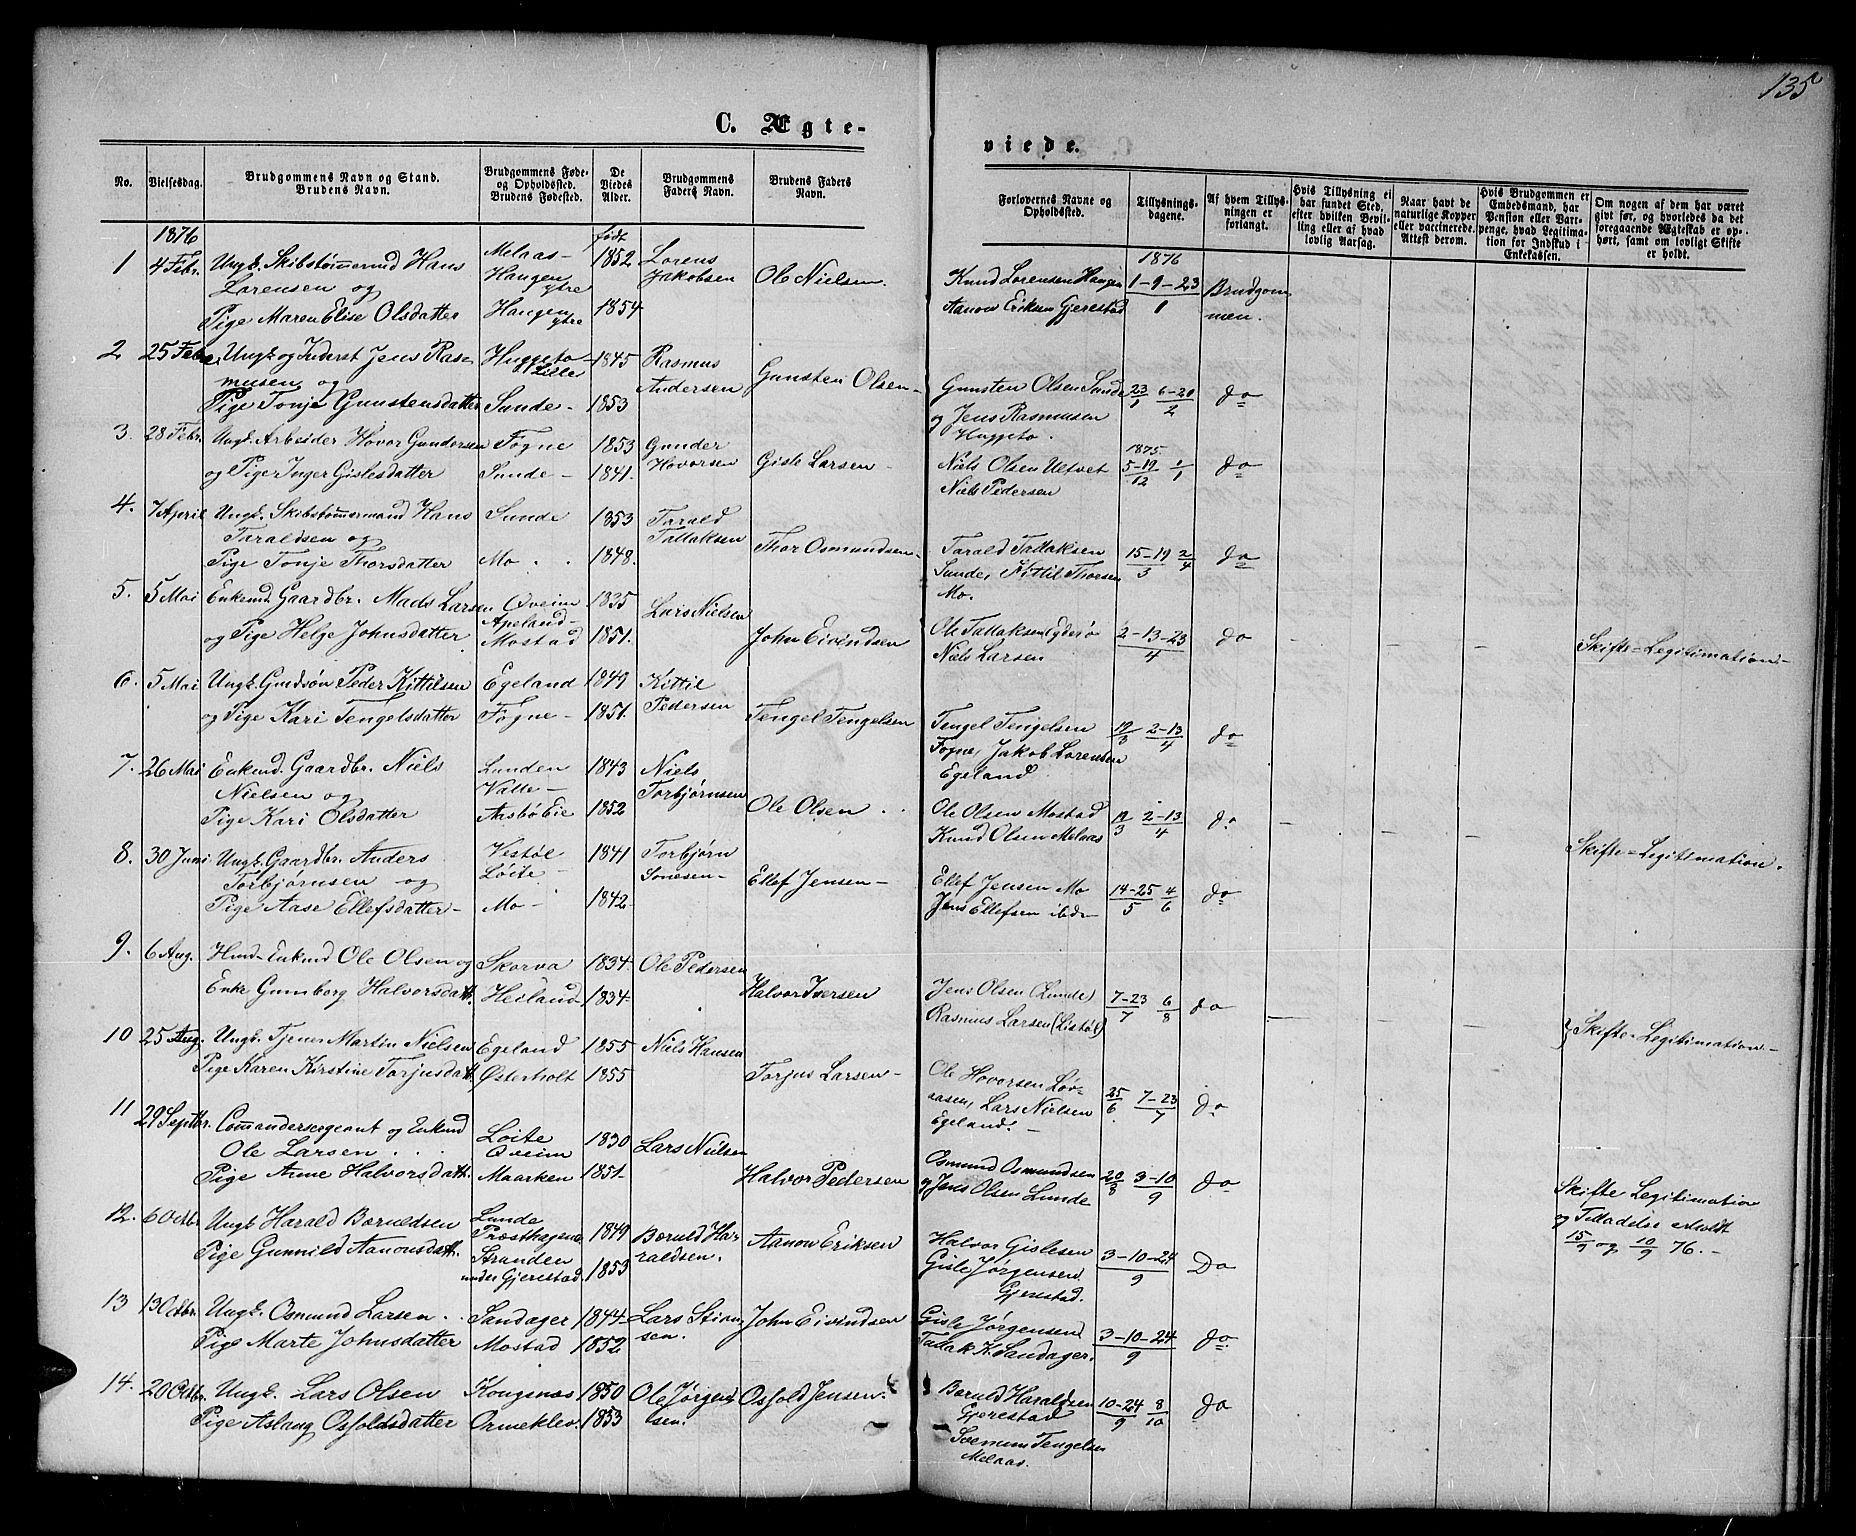 135
C. Ægte-
viede.
No.
Vielsesdag.
Brudgommens Navn og Stand.
Brudens Navn.
Brudgommens Føde-
og Opholdssted.
Brudens Fødested.
De
Viedes
Alder.
Brudgommens
Faders Navn.
Brudens Faders
Navn.
Forlovernes Navne og
Opholdssted.
Tillysnings-
dagene.
Af hvem Tillys-
ningen er
forlangt.
Hvis Tillysning ei
har fundet Sted,
efter hvilken Bevil-
ling eller af hvad
lovlig Aarsag.
Naar havt de
naturlige Kopper
eller vaccinerede.
Attest derom.
Hvis Brudgommen er
Embedsmand, har
Pension eller Varte-
penge, hvad Legitima-
tion for Indskud i
Enkekassen.
Om nogen af dem har været
gift før, og hvorledes da det
foregaaende Ægteskab er op-
hørt, samt om lovligt Skifte
er holdt.
1876
født
1876
1
4 Febr.
Ungk. Skibstømmermd Hans
Lorensen og
Pige Maren Elise Olsdatter
Melaas-
Haugen
ytre
Haugen
ytre
1852
1854
Lorens
Jakobsen
Ole Nielsen.
Knud Lorensen Haugen
Aanon Eriksen Gjerestad
1-9-23
1
Brudgom
men.
2
25 Febr.
Ungk. og Inderst Jens Ras-
musen og
Pige Tonje Gunstensdatter
Huggeto
Lille
Sunde-
1845
1853
Rasmus
Andersen
Gunsten Olsen-
Gunsten Olsen Sunde
og Jens Rasmusen
Huggeto.
23/1 6-20/2
do
3.
28 Febr.
Ungk. Arbeider Hovor Gundersen
og Pige Inger Gislesdatter
Fogne
Sunde-
1853
1841.
Gunder
Hovorsen
Gisle Larsen-
Niels Olsen Ulтvet
Niels Pedersen
1875
5-19/12 /1
do
4.
7 April
Ungk. Skibstømmermand Hans
Taraldsen og
Pige Tonje Thorsdatter
Sunde
Mo
1853
1848.
Tarald
Tallaksen
Thor Osmundsen-
Tarald Tallaksen
Sunde, Kittil Thorsen
Mo.
15-19/3 2/4
do
5.
5 Mai
Enkemd. Gaardbr. Mads Larsen
og Pige Helge Johnsdatter
Qveim
Apeland-
Mostad
1835
1851.
Lars Nielsen
John Eivindsen
Ole Tallaksen
Niels Larsen
2-13-23
4
do
Skifte-Legitimation-
6.
5 Mai
Ungk. Gmdsøn Peder Kittilsen
og Pige Kari Tengelsdatter
Egeland
Fogne-
1849
1851.
Kittil
Pedersen
Tengel Tengelsen
Tengel Tengelsen
Fogne, Jakob Lorensen
Egeland
19/3 2-13/4
do
7.
26 Mai
Enkmd. Gaardbr. Niels
Nielsen og
Pige Kari Olsdatter
Lunden
Valle-
Aasbø Eie
1843
1852
Niels
Torbjørnsen
Ole Olsen
Ole Olsen Mostad
Knud Olsen Melaas
19/3 2-13/4
do
Skifte-Legitimation.
8.
30 Juni
Ungk. Gaardbr. Anders
Torbjørnsen og
Pige Aase Ellefsdatter-
Vestøl
Løite-
Mo-
1841
1842-
Torbjørn
Sonesen-
Ellef Jensen-
Ellef Jensen Mo
Jens Ellefsen ibd-
14-25/5 4/6
do
9.
6 Aug.
Hmd-Enkmd Ole Olsen og
Enke Gunborg Halvorsdatt.
Skorva
Heiland
1834-
1834-
Ole Pedersen
Halvor Iversen
Jens Olsen (Lunde)
Rasmus Larsen (Listøl)
7-23/7 6/8
do
} Skifte-Legitimation-
10
25 Aug.
Ungk. Tjener Martin Nielsen
Pige Karen Kirstine Torjusdatt.
Egeland
Østerholt
1855
1855
Niels Hansen
Torjus Larsen-
Ole Hovorsen Løv-
aasen, Lars Nielsen
Egeland.-
25/6 7-23/7
do
11
29 Septbr.
Commandersergeant og Enkmd
Ole Larsen
Pige Anne Halvorsdatt.
Løite
Qveim
Maarken
1830
1851-
Lars Nielsen
Halvor Pedersen
Osmund Osmundsen
og Jens Olsen Lunde
20/8 3-10/9
do
Skifte Legitimation
og Tilladelse erholdt
15/9 og 10/9 76.-
12.
6 Octbr.
Ungk Harald Boruldsen
Pige Gunnild Aanonsdatt.
Lunde
Præsthagen
Stranden
under Gjerestad
1849
1853
Boruld Ha-
raldsen.
Aanon Eriksen
Halvor Gislesen
Gisle Jørgensen
Gjerestad.
3-10-24
9
Do
13
13 Octbr.
Ungk. Osmund Larsen
Pige Marte Johnsdatter
Sandager
Mostad
1844-
1852
Lars Stian-
sen.
John Eivindsen
Gisle Jørgensen
Tallak K. Sandager.
3-10-24
9
do
14.
20 Octbr.
Ungk. Lars Olsen
Pige Aslaug Osfoldsdatter
Kongsnæs
Ormeklev.
1850
1853
Ole Jørgen-
sen.
Osfold Jensen.
Boruld Haraldsen
Gjerestad
Soemum Tengelsen
Melaas.
10-24/9 8/10
do